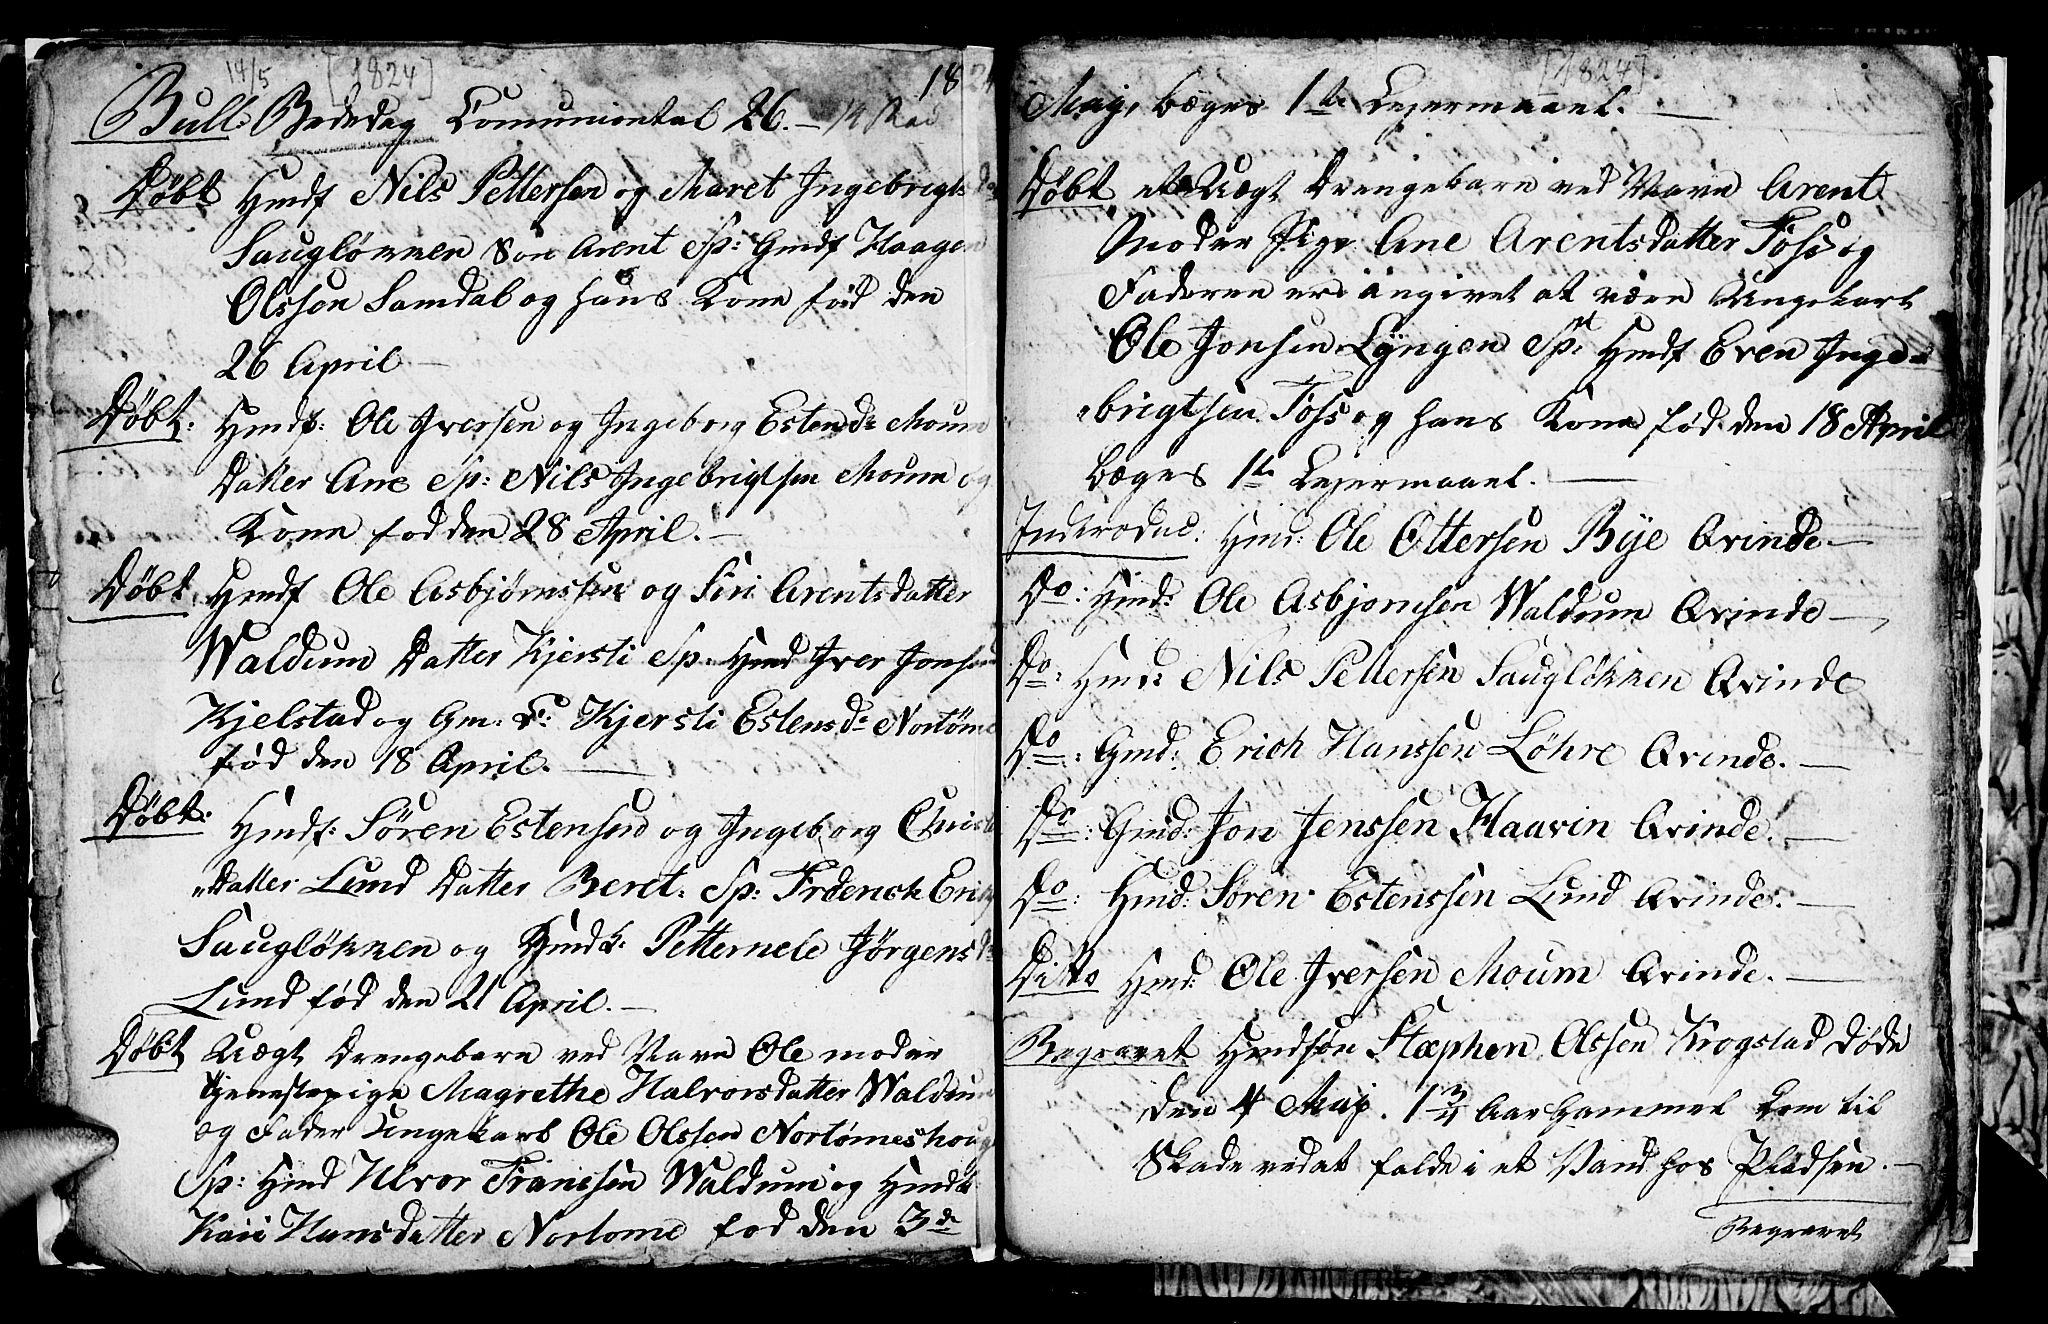 14/5 [1824] 1824
Bull: Bededag Comuniental 26. — 14 Mai
Døbt Hmdf Nils Pettersen og Maret Ingebrigts
Saugløkken Søn Arent Sp: Gmdf Haagen
Olssen Samdal og hans Kone fød den
26 April —
Døbt: Hmdf: Ole Iversen og Ingeborg Estend: Moum
Datter Ane Sp: Nils Ingebrigtsen Moum og
Kone fød den 28 April. —
Døbt Hmdf Ole Asbjørnssen og Siri Arentsdatter
Waldum Datter Kjersti Sp: Hmd Iver Jonsen
Kjelstad og Gm: D: Kjersti Estensd: Nortøme
fød den 18 April. —
Døbt: Hmdf: Sören Estensen og Ingeborg
datter Lund Datter Beret: Sp: Frderich Erichs
Saugløkken og Hmdk: Petternele Jørgensd
Lund fød den 21 April. —
Døbt Uægt Drengebarn ved Navn Ole moder
tjenestepige Magrethe Halvorsdatter Waldum
og Fader Ungekarl Ole Olssen Nortømeshoug
Sp: Hmd Halvor Franssen Waldum og Hmdk
Kari Hansdatter Nortome fød den 3de
[1824]
Maj, begges 1te Lejermaael. —
Døbt et Uægt Drengebarn ved Navn Arent
Moder Pige Ane Arentsdatter Foss og
Faderen er angivet at være Ungekarl
Ole Jonsen Lyngen Sp: Hmdf Even Inge-
brigtsen Foss og hans Kone fød den 18 April
begges 1te Lejermaael. —
Introduc: Hmd: Ole Ottersen Bye Qvinde —
Do: Hmd: Ole Asbjornsen Waldum Qvinde —
Do: Hmd: Nils Pettersen Saugløkken Qvinde
Do: Gmd: Erich Hanssen Löhre Qvinde. —
Do: Gmd: Jon Jenssen Haavin Qvinde. —
Do: Hmd: Sören Estenssen Lund Qvinde. —
Ditto Hmd: Ole Iversen Moum Qvinde. —
Begravet Hmdsøn Stephen Olssen Krogstad døde
den 4 Maj. 1 3/4 Aar Gammel kom til
Skade ved at falde i et Vand hos Pladsen. —
Begravet